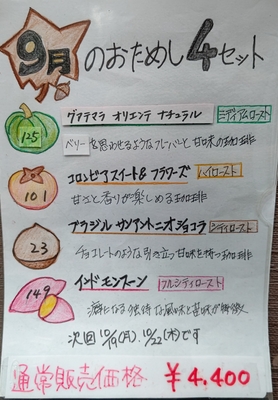 9月のおためし4セット
グアテマラ オリエンテ ナチュラル ミディアムロースト
125
ベリーを思わせるようなフレーバーと甘味の珈琲
コロンビアスイート&フラワーズ ハイロースト
101
甘さと香りが楽しめる珈琲
ブラジル サンアントニオショコラ シティロースト
23
チョコレートのような引き立つ甘味を持つ珈琲
インドモンスーン フルシティロースト
149
癖になる独特な風味と苦味が特徴
次回 10/19(月)、10/22(木)です
通常販売価格 ¥4,400